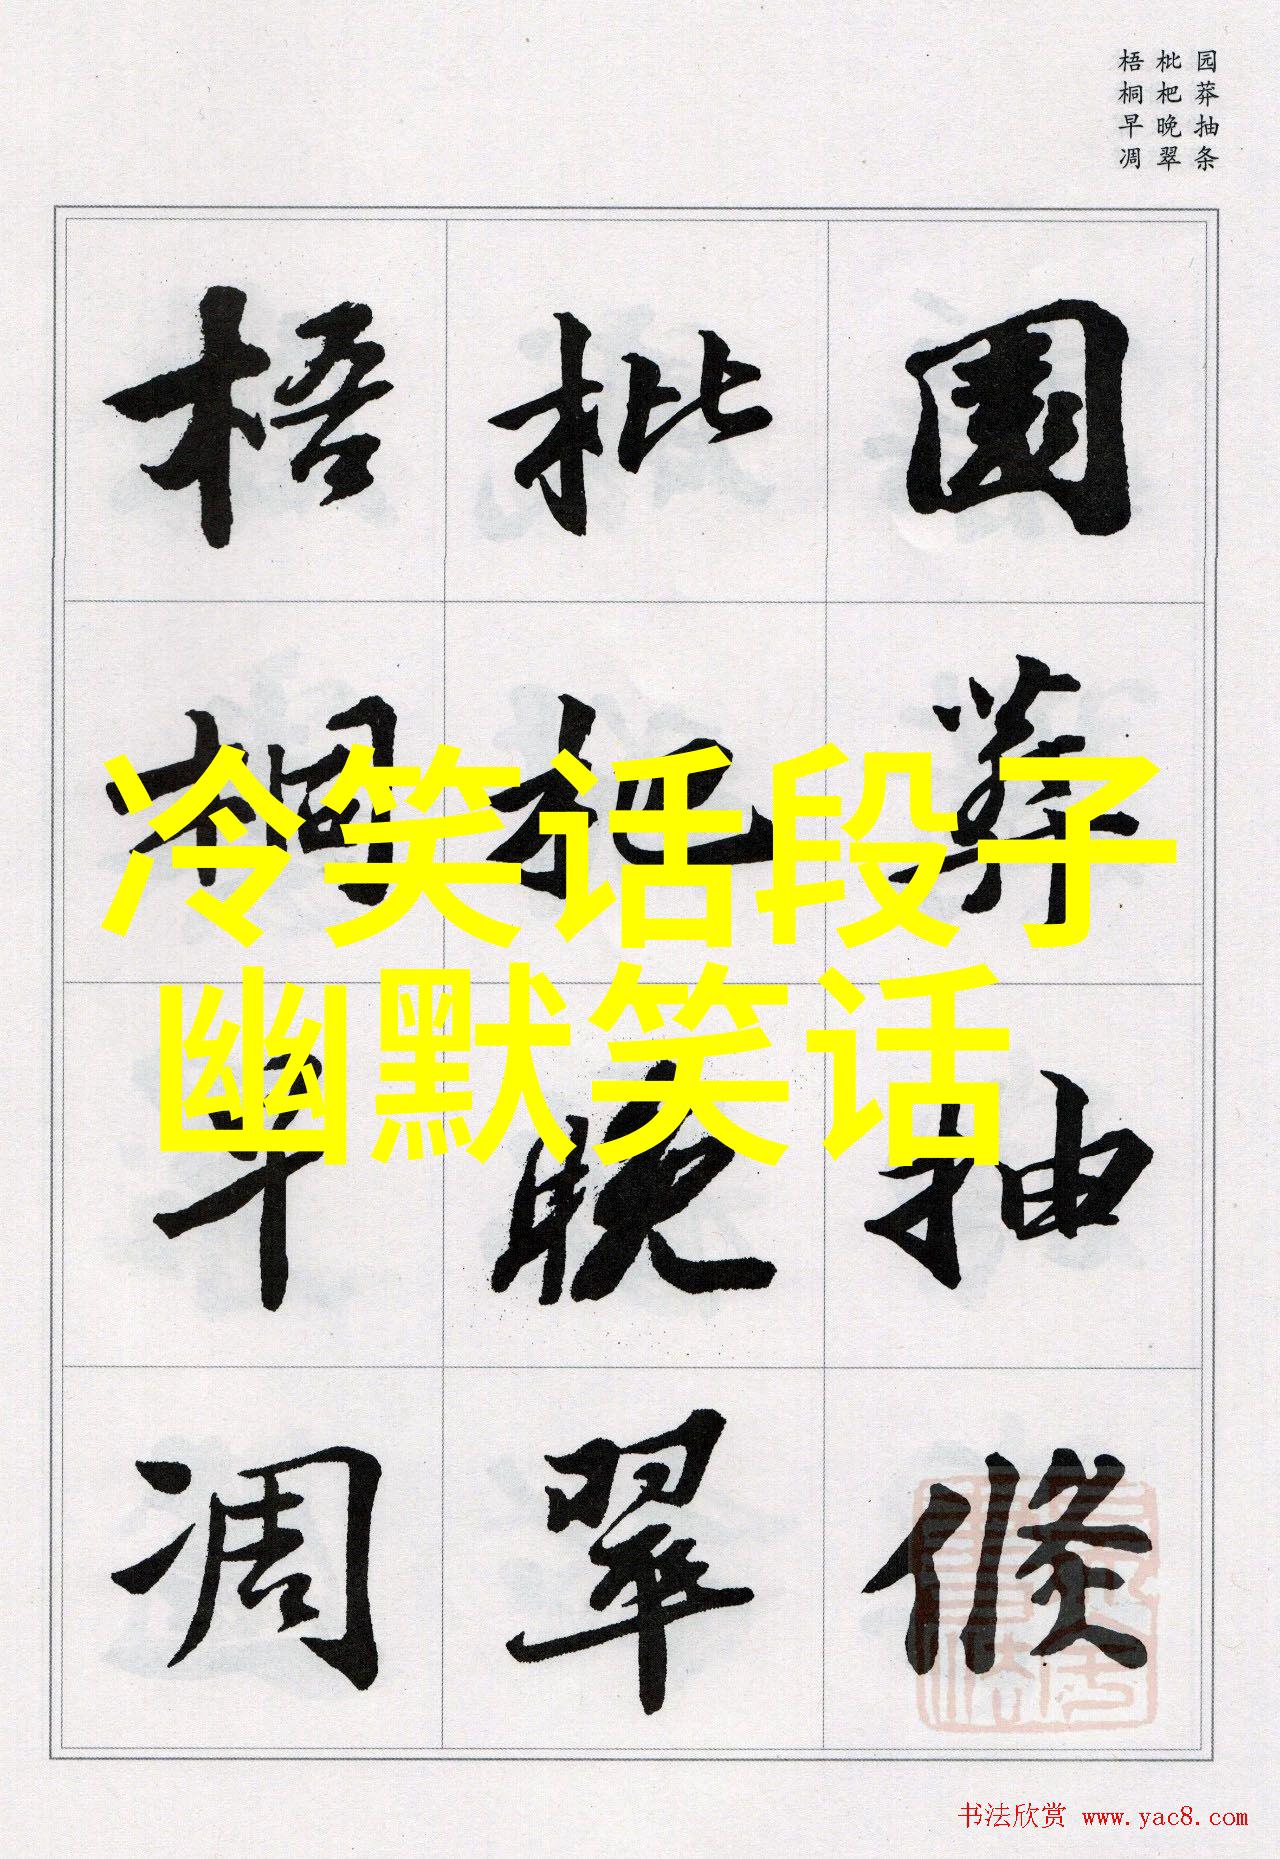 园莽抽条
枇杷晚翠
梧桐早凋
園莽抽條
枇杷晚翠
梧桐早凋
冷笑话段子
幽默笑话
书法欣赏 www.yac8.com